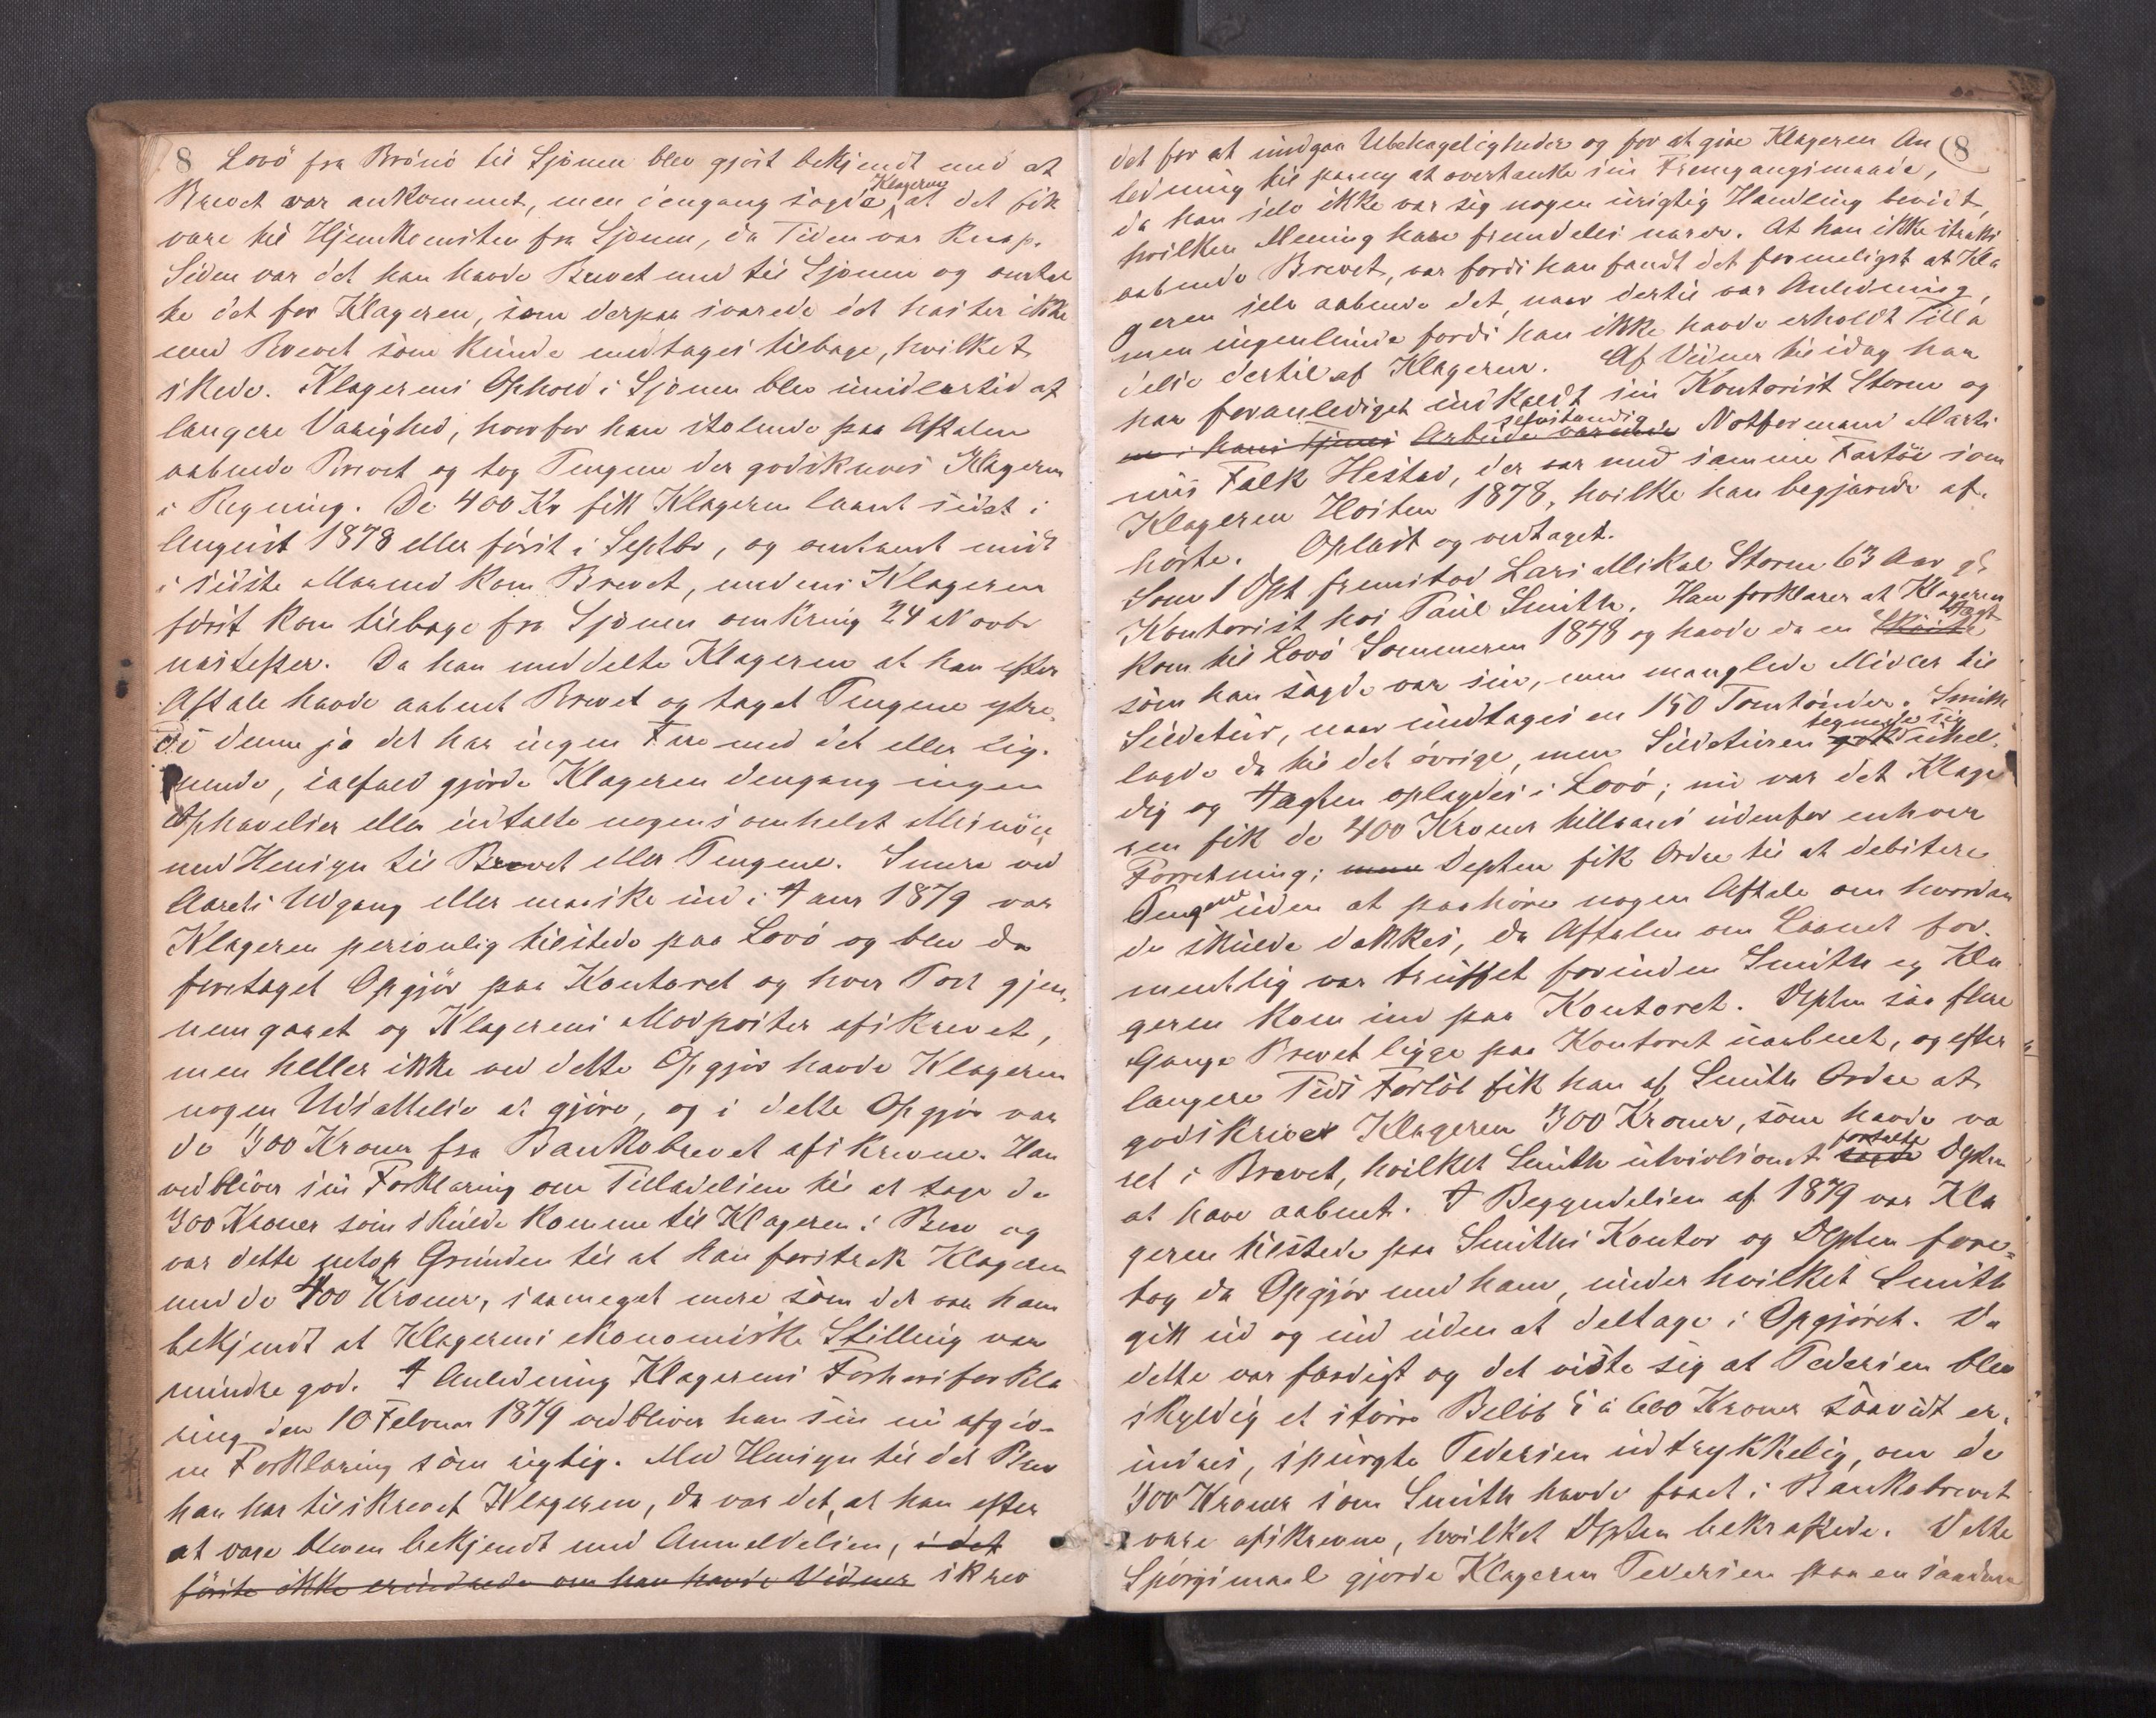 8 Lovö fra Brönö til Sjonen blev gjört bekjendt med at
Brevet var ankommet, men dengang sagde Klageren, at det fik
være til Hjemkomsten fra Sjonen, da Tiden var knap.
Siden var det han havde Brevet med til Sjonen og omtal
te det for Klageren, som derpaa svarede det haster ikke
med Brevet som kunde medtages tilbage, hvilket
skede. Klagerens Ophold i Sjonen blev imidlertid af
længere Varighed, hvorfor han stolende paa Aftalen
aabnede Brevet og tog Pengene der godskreves Klageren
i Regning. De 400 Kr fik Klageren laant sidst i
August 1878 eller först i Septbr, og omtrent midt
i sidste Maaned kom Brevet, medens Klageren
först kom tilbage fra Sjonen omkring 24 Novbr
næstefter. Da han meddelte Klageren at han efter
Aftale havde aabnet Brevet og taget Pengene ytre
de denne ja det har ingen Fare med det eller lig-
nende, ialfald gjörde Klageren dengang ingen
Ophævelser eller udtalte nogensomhelst Misnöie
med Hensyn til Brevet eller Pengene. Senere ved
Aarets Udgang eller maaske ind i Januar 1879 var
Klageren personlig tilstede paa Lovö og blev da
foretaget Opgjör paa Kontoret og hver Post gjen-
nemgaaet og Klagerens Modposter afskrevet,
men heller ikke ved dette Opgjör havde Klageren
nogen Udsættelse at gjöre, og i dette Opgjör var
de 300 Kroner fra Bankobrevet afskrevne. Han
vedbliver sin Forklaring om Tilladelsen til at tage de
300 Kroner som skulde komme til Klageren i Brev og
var dette netop Grunden til at han forstrak Klageren
med de 400 Kroner, saameget mere som det var ham
bekjendt at Klagerens ekonomiske Stilling var
mindre god. I Anledning Klagerens Forhørsforkla
ring den 10 Februar 1879 vedbliver han sin nu afgiv-
ne Forklaring som rigtig. Med Hensyn til det Brev
han har tilskrevet Klageren, da var det, at han efter
at være bleven bekjendt med Anmeldelsen, i det
förste ikke erindrede om han havde Vidner skrev
8
det for at undgaa Ubehageligheder og for at give Klageren An
ledning til paany at overtænke sin Fremgangsmaade,
da han selv ikke var sig nogen urigtig Handling bevidt,
hvilken Mening han fremdeles nærer. At han ikke straks
aabnede Brevet, var fordi han fandt det formeligst at Kla
geren selv aabnede det, naar dertil var Anledning,
men ingenlunde fordi han ikke havde erholdt Tilla
delse dertil af Klageren. Af Vidner til idag har
han foranlediget indkaldt sin Kontorist Storm og
en i hans Tjenes Arbeide værende selvstændig Notformand Marti
nus Falk Hestad, der var med samme Fartöi som
Klageren Hösten 1878, hvilke han begjærede af-
hörte. Oplæst og vedtaget.
Som 1 Dpt fremstod Lars Mikal Storm 63 Aar gl
Kontorist hos Paul Smith. Han forklarer at Klageren
kom til Lovö Sommeren 1878 og havde da en Sköite Jagt
som han sagde var sin, men manglede Midler til
Sildetur, naar undtages en 150 Tomtönder. Smith
lagde da til det övrige, men Sildeturen gik tegnede sig uhel-
dig og Jagten oplagdes i Lovö; nu var det Klage
ren fik de 400 Kroner tillaans udenfor enhver
Forretning; men Depten fik Ordre til at debitere
Pengene uden at paahöre nogen Aftale om hvordan
de skulde dækkes, da Aftalen om Laanet for-
mentlig var truffet forinden Smith og Kla
geren kom ind paa Kontoret. Dpten saa flere
Gange Brevet ligge paa Kontoret uaabnet, og efter
længere Tids Forlöb fik han af Smith Ordre at
godskrive Klageren 300 Kroner, som havde væ
ret i Brevet, hvilket Smith utvivlsomt sagde fortalte Dpten
at have aabnet. I Begyndelsen af 1879 var Kla
geren tilstede paa Smiths Kontor og Dpten fore-
tog da Opgjör med ham, under hvilket Smith
gik ud og ind uden at deltage i Opgjöret. Da
dette var færdigt og det viste sig at Pedersen blev
skyldig et större Belöb 5 à 600 Kroner saavidt er-
indres, spurgte Pedersen udtrykkelig, om de
300 Kroner som Smith havde faaet i Bankobrevet
vare afskrevne, hvilket Dpten bekræftede. Dette
Spörgsmaal gjorde Klageren Pedersen paa en saadan